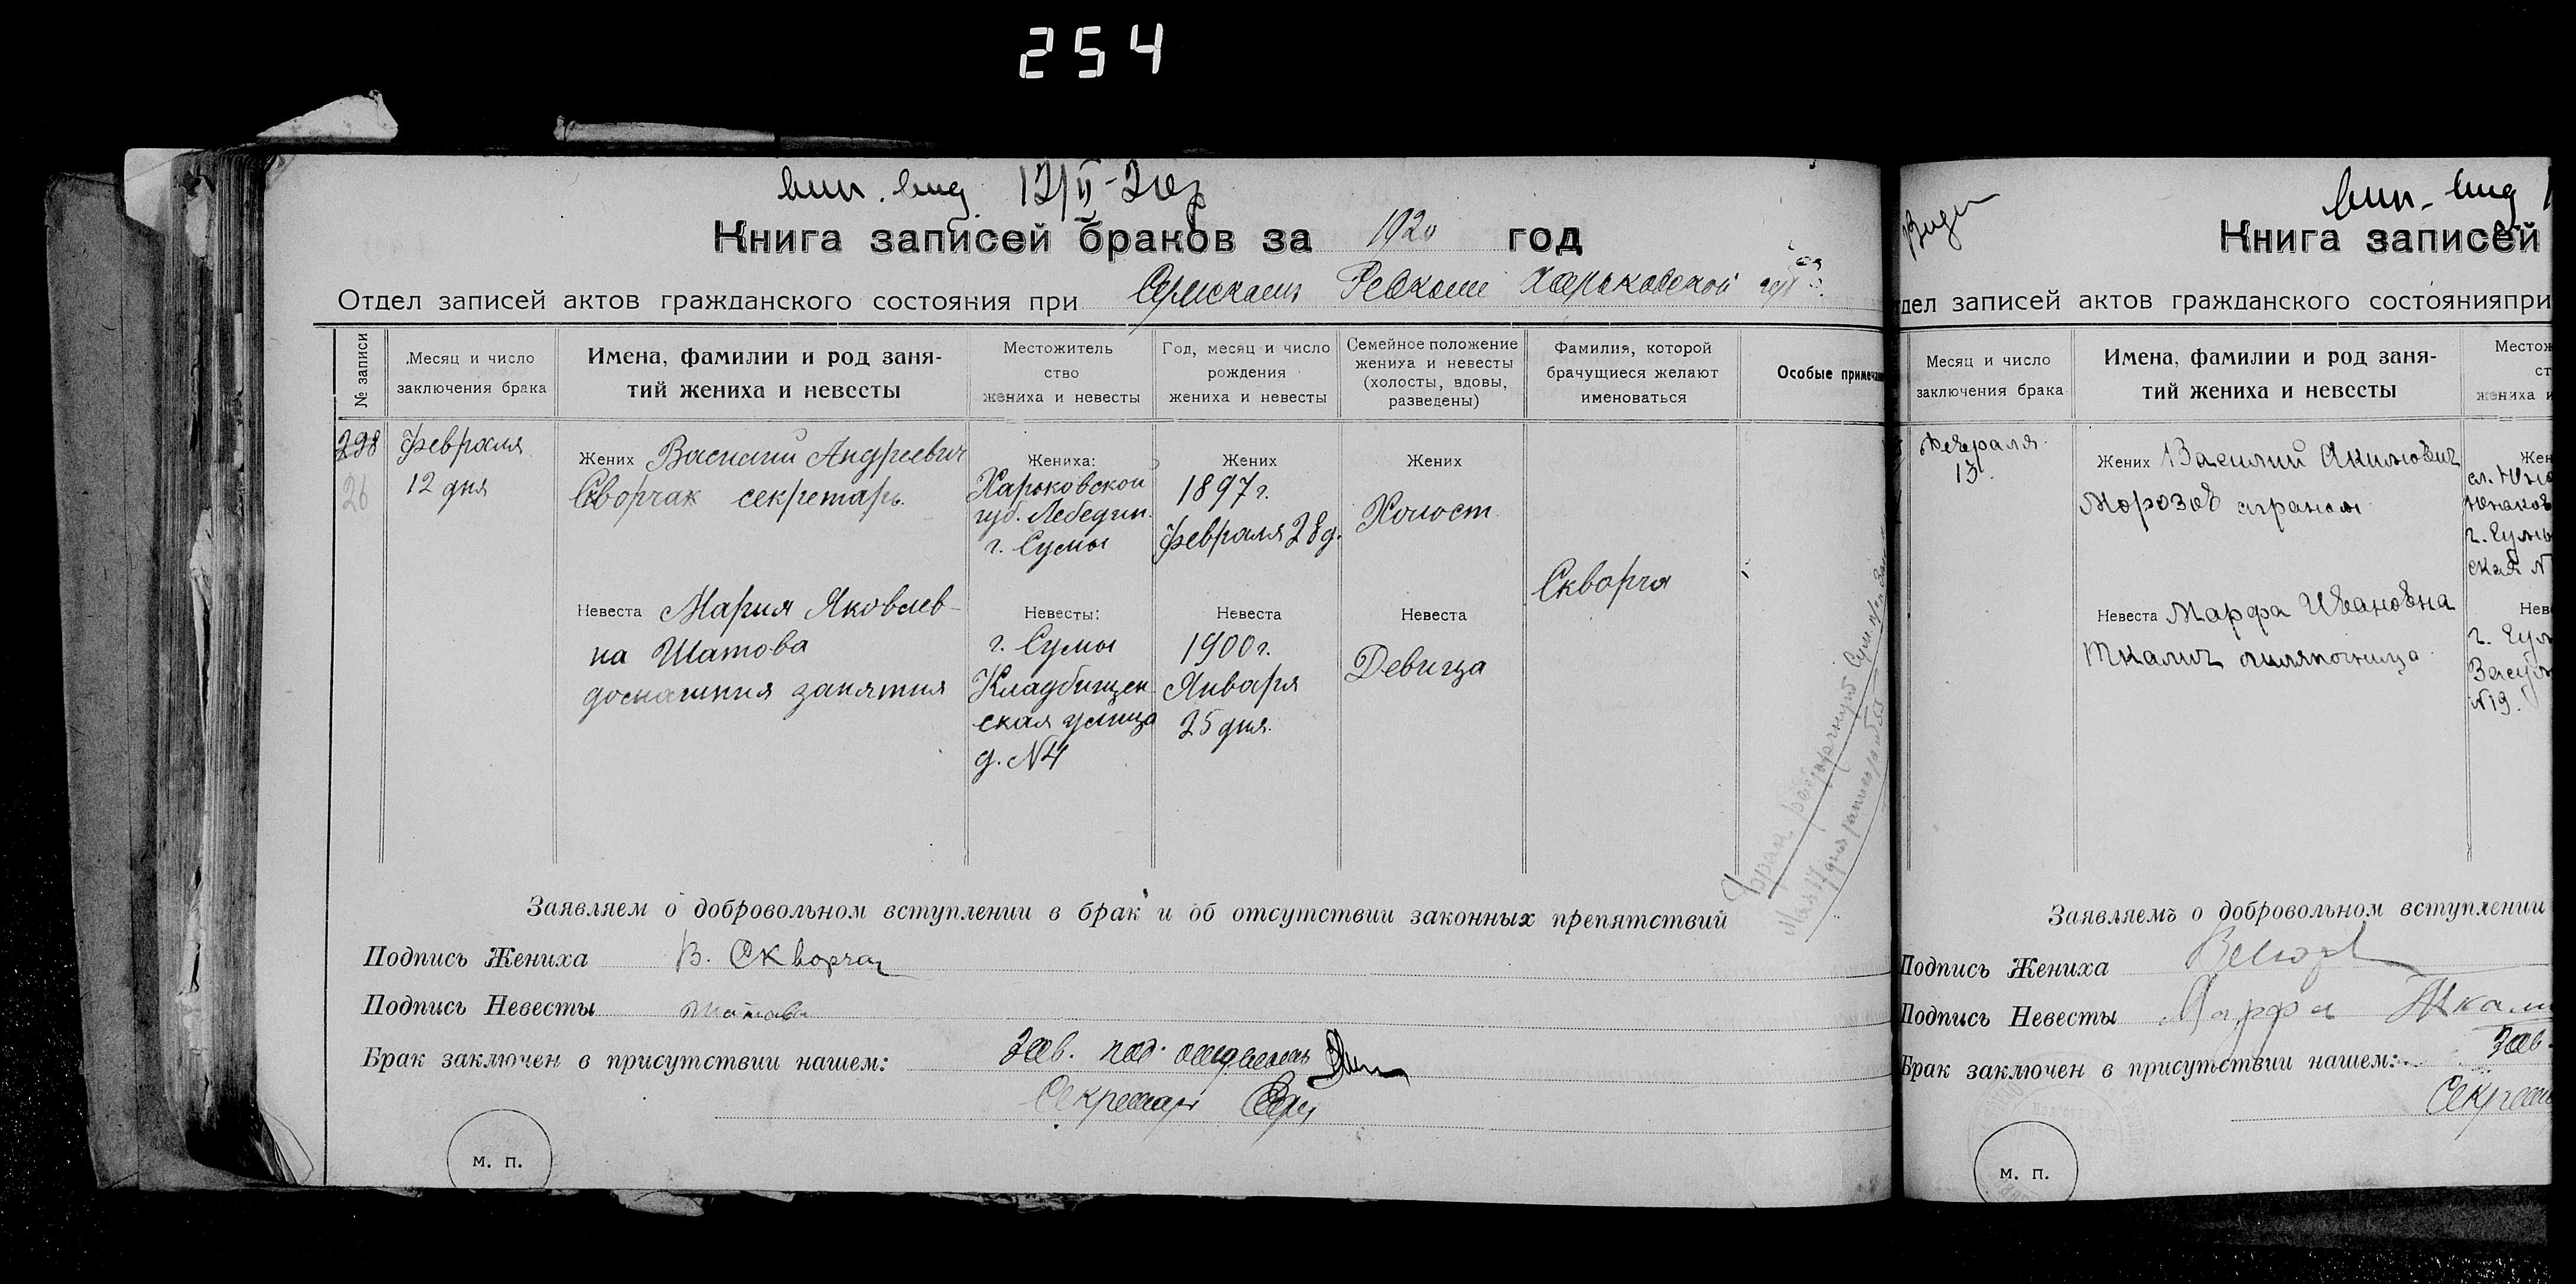 254
вып. вид. 12/II-20г
Книга записей браков за 1920 год
Отдел записей актов гражданского состояния при Сумском Ревкоме Харьковской губ.
№ записи
Месяц и число
заключения брака
Имена, фамилии и род заня-
тий жениха и невесты
Местожитель
ство
жениха и невесты
Год, месяц и число
рождения
жениха и невесты
Семейное положение
жениха и невесты
(холосты, вдовы,
разведены)
Фамилия, которой
брачущиеся желают
именоваться
Особые примечан
298
26
Февраля
12 дня
Жених Василий Андреевич
Скворчак секретарь.
Жениха:
Харьковской
губ. Лебедин.
г. Сумы
Жених
1897 г.
Февраля 28 д.
Жених
Холост
Невеста Мария Яковлев-
на Шатова
домашния занятия
Невесты:
г. Сумы
Кладбищен
ская улица
д. №4
Невеста
1900 г.
Января
25 дня.
Невеста
Девица
Скворча
Брак расторгнут Сум.
Заявляем о добровольном вступлении в брак и об отсутствии законных препятствий
Подпись Жениха В. Скворчак
Подпись Невесты Шатова
Брак заключен в присутствии нашем: Зав. под. отделом
Секретарь
м. п.
вып. вид
Книга записей
тдел записей актов гражданского состоянияпри
Месяц и число
заключения брака
Имена, фамилии и род заня-
тий жениха и невесты
Местож
ст
жениха и
Февраля
13.
Жених Василий Акимович
Морозов агроном
Жен
сл. Юна
Юнаков
г. Сумы
ская №
Невеста Марфа Ивановна
Ткалич шляпочница
Нев
г. Сум
Засум
№19.
Заявляемъ о добровольном вступлении
Подпись Жениха
Подпись Невесты Марфа Ткали
Брак заключен в присутствии нашем: Зав.
Секрета
м. п.